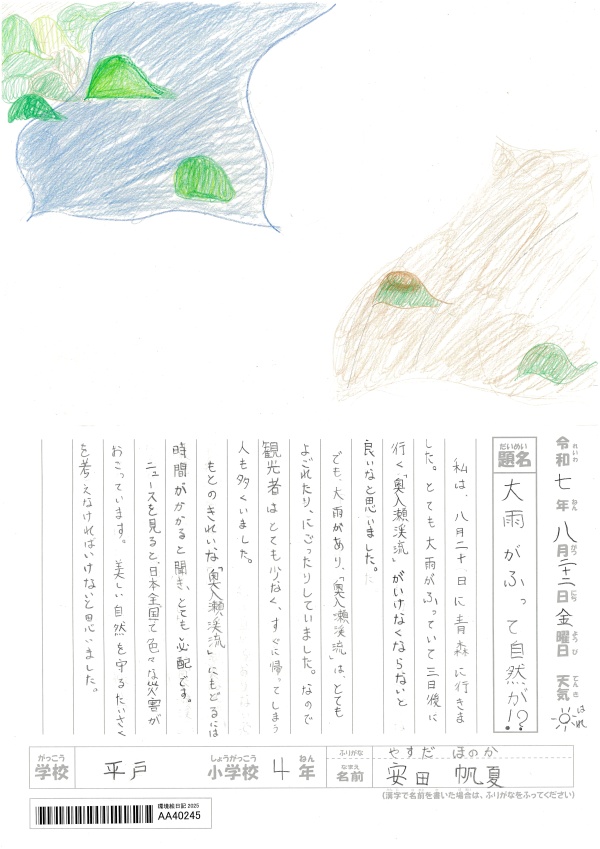 令和七年八月二十二日金曜日 天気 はれ
れいわ ねん がつ にち ようび てんき
だいめい
題名 大雨がふって自然が!?
私は、八月二十日に青森に行きま
した。とても大雨がふっていて三日後に
行く「奥入瀬渓流」がいけなくならないと
良いなと思いました。
でも、大雨があり、「奥入瀬渓流」は、とても
よごれたり、にごったりしていました。なので
観光者はとても少なく、すぐに帰ってしまう
人も多くいました。
もとのきれいな「奥入瀬渓流」にもどるには
時間がかかると聞き、とても心配です。
ニュースを見ると、日本全国で色々な災害が
おこっています。美しい自然を守るたいさく
を考えなければいけないと思いました。
がっこう しょうがっこう ねん
学校 平戸 小学校 4年
ふりがな やすだ ほのか
なまえ
名前 安田 帆夏
(漢字で名前を書いた場合は、ふりがなをふってください)
環境絵日記2025
AA40245